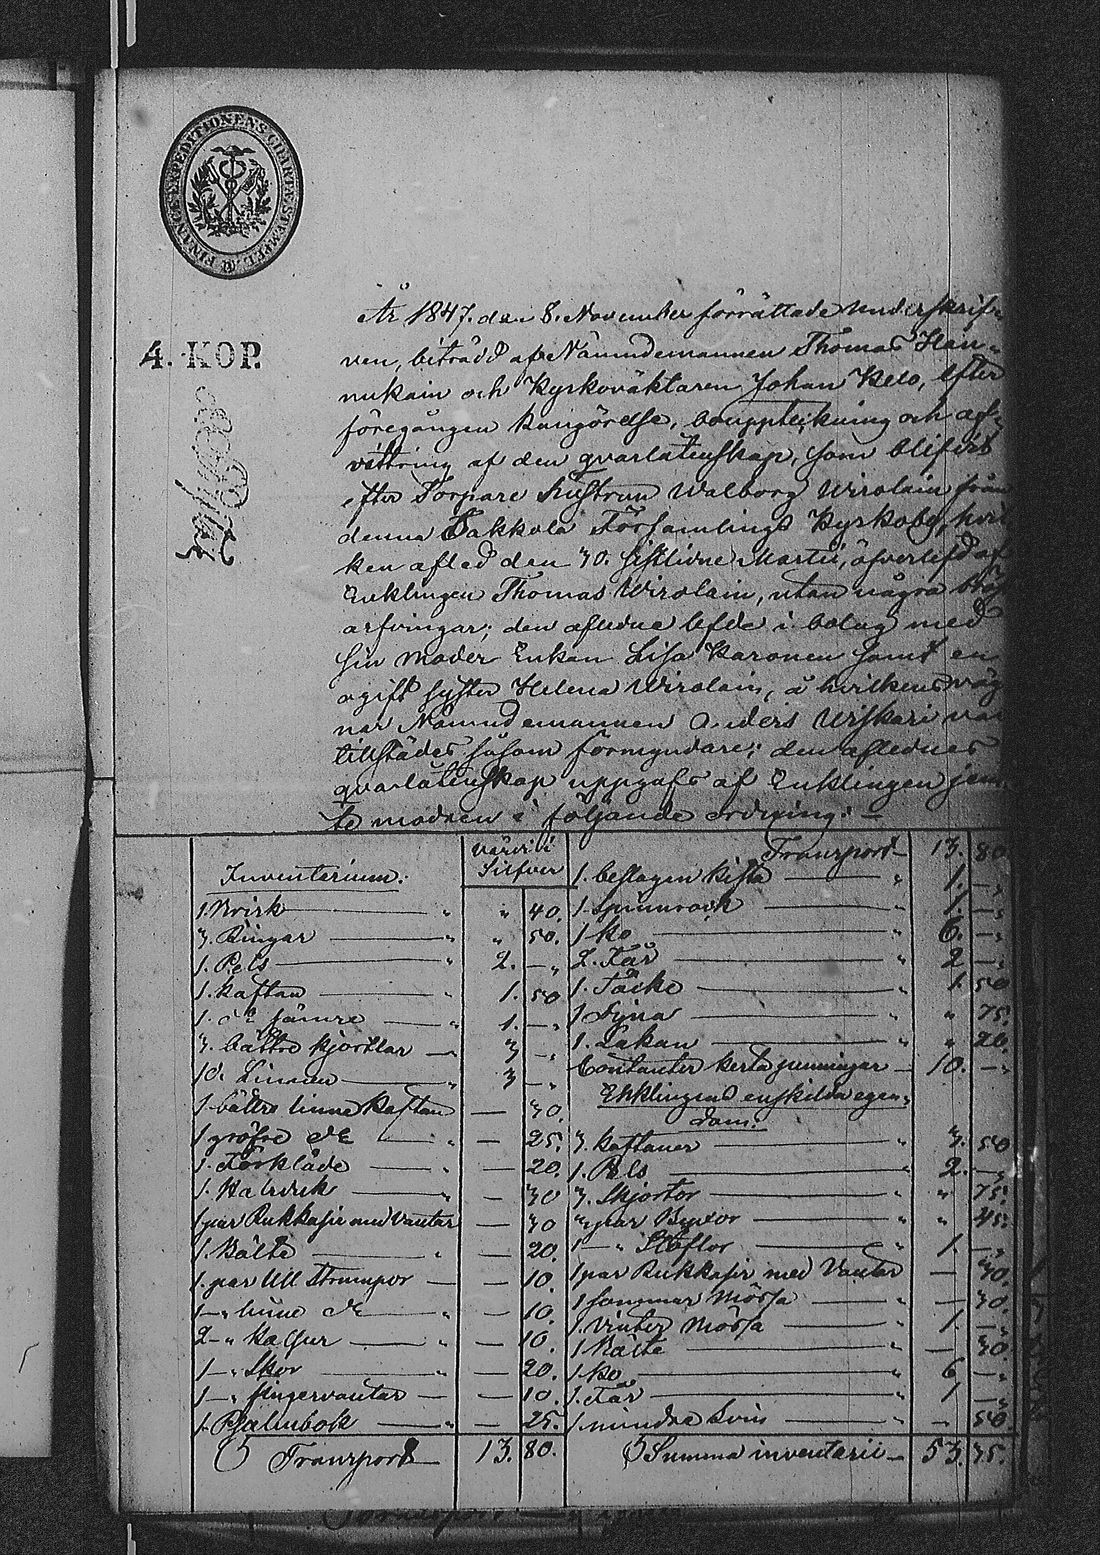 FINANCE EXPEDITIONENS CHARTÆ STEMPEL
4. KOP.
År 1847. den 8. November förrättade underskrif-
ven, biträdd af Nämndemannen Thomas Han-
nukain och Kyrkoväktaren Johan Peso, efter
föregången kungörelse, bouppteckning och af-
vittring af den qvarlåtenskap, som blifvit
efter Torpare hustrun Walborg Wirolain från
denna Sakkola Församlings Kyrkoby, hvil
ken afled den 30. sistlidne Martii, öfverlefd af
Enklingen Thomas Wirolain, utan några bröst
arfvingar; den aflidne lefde i bolag med
sin moder Enkan Lisa Karonen samt en
ogift syster Helena Wirolain, å hvilkens väg
nar Nämndemannen Anders Uiskari var
tillstädes såsom förmyndare; den aflidnes
qvarlåtenskap uppgafs af Enklingen jem
te modren i följande ordning: —
Inventarium: Värde i Silfver
1. Krisk — " " 40.
3. Ringar — " " 50.
1. Pels — " 2. — "
1. kaftan — " 1. 50
1. do sämre — " 1. — "
3. bättre kjortlar — 3 — "
10. Linnen — " 3 — "
1. bättre linne kaftan — 30.
1 gröfre do — " — 25.
1. Förkläde — " — 20.
1. Halsduk — " — 30
1 par Rukkasie med Vantar — 30
1. Bälte — " — 20.
1. par Ull Strumpor — — 10.
1 — " linne do — " — 10.
2 — " — " — 10.
1 — " Skor — — 20.
1 — " fingervantar — — 10.
1. Psalmbok — " — 25.
Transport 13. 80.
Transport — 13. 80.
1. beslagen kista — " 1. — "
1. Spinnrock — " 1. — "
1 ko — " 6. — "
2. Får — " 2 — "
1. Täcke — " 1. 50
1. Dyna — " " 75.
1. Lakan — " " 20.
Contanter — 10. — "
Enklingens enskilda egen-
dom:
3. kaftaner — " 3. 50
1. Pels — " 2. — "
3. Skjortor — " " 75.
3 par Byxor — " " 45.
1 — " Stöflor — " 1. — "
1 par Rukkasir med Vantar — 30.
1 sommar Mössa — " — 30.
1. Vinter Mössa — " 1. — "
1 Bälte — " — 30.
1 ko — " 6 — "
1. Får — " 1 — "
1. mindre svin — " — 50
Summa inventarii — 53. 75.